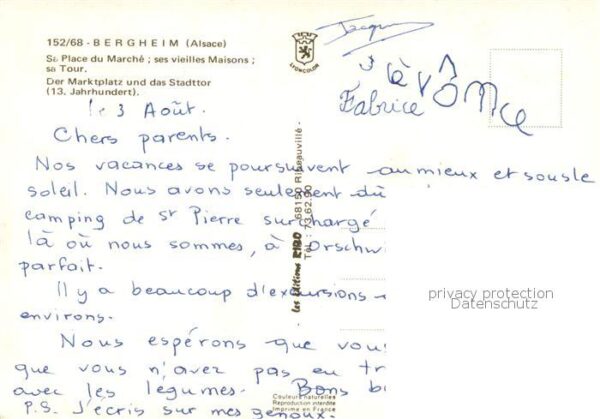 152/68 - BERGHEIM (Alsace)
Sa Place du Marché ; ses vieilles Maisons ;
sa Tour.
Der Marktplatz und das Stadttor
(13. Jahrhundert).
LYONCOLOR
Fabrice
le 3 Août.
Chers parents.
Nos vacances se poursuivent au mieux et sous le
soleil. Nous avons seulement dû
camping de St Pierre surchargé
là où nous sommes, à Orschwi
parfait.
Il y a beaucoup d'excursions
environs.
Nous espérons que vou
que vous n'avez pas en tr
avec les légumes. Bons b
P.S. J'écris sur mes genoux.
les éditions RIBO 68150 Ribeauvillé -
Tél. : 73.62.90
Couleurs naturelles
Reproduction interdite
Imprimé en France
privacy protection
Datenschutz